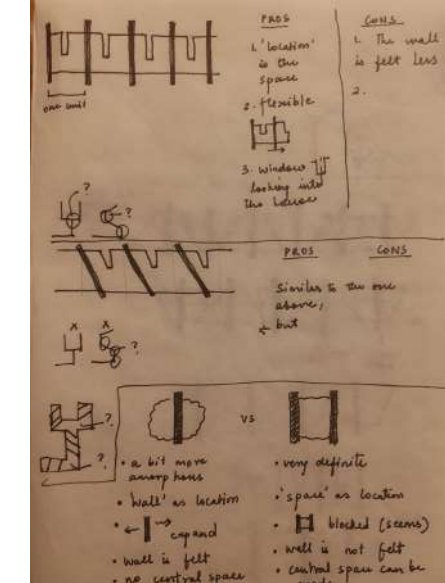 PROS
1. 'location'
is the
space
2. flexible
3. window
looking into
the house
CONS
1. The wall
is felt less
2.
one unit
?
?
PROS CONS
Similar to the one
above,
but
x x
?
?
?
vs
• a bit more
amorphous
• 'wall' as location
• expand
• wall is felt
• no central space
• very definite
• 'space' as location
• blocked (seems)
• wall is not felt
• central space can be